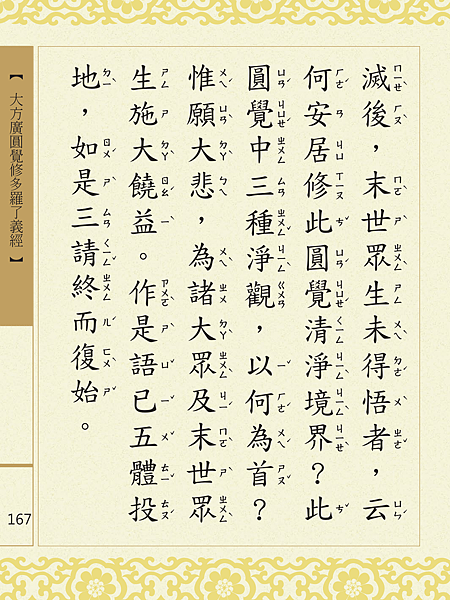 滅後，末世眾生未得悟者，云
何安居修此圓覺清淨境界？此
圓覺中三種淨觀，以何為首？
惟願大悲，為諸大眾及末世眾
生施大饒益。作是語已五體投
地，如是三請終而復始。
【 大方廣圓覺修多羅了義經 】
167